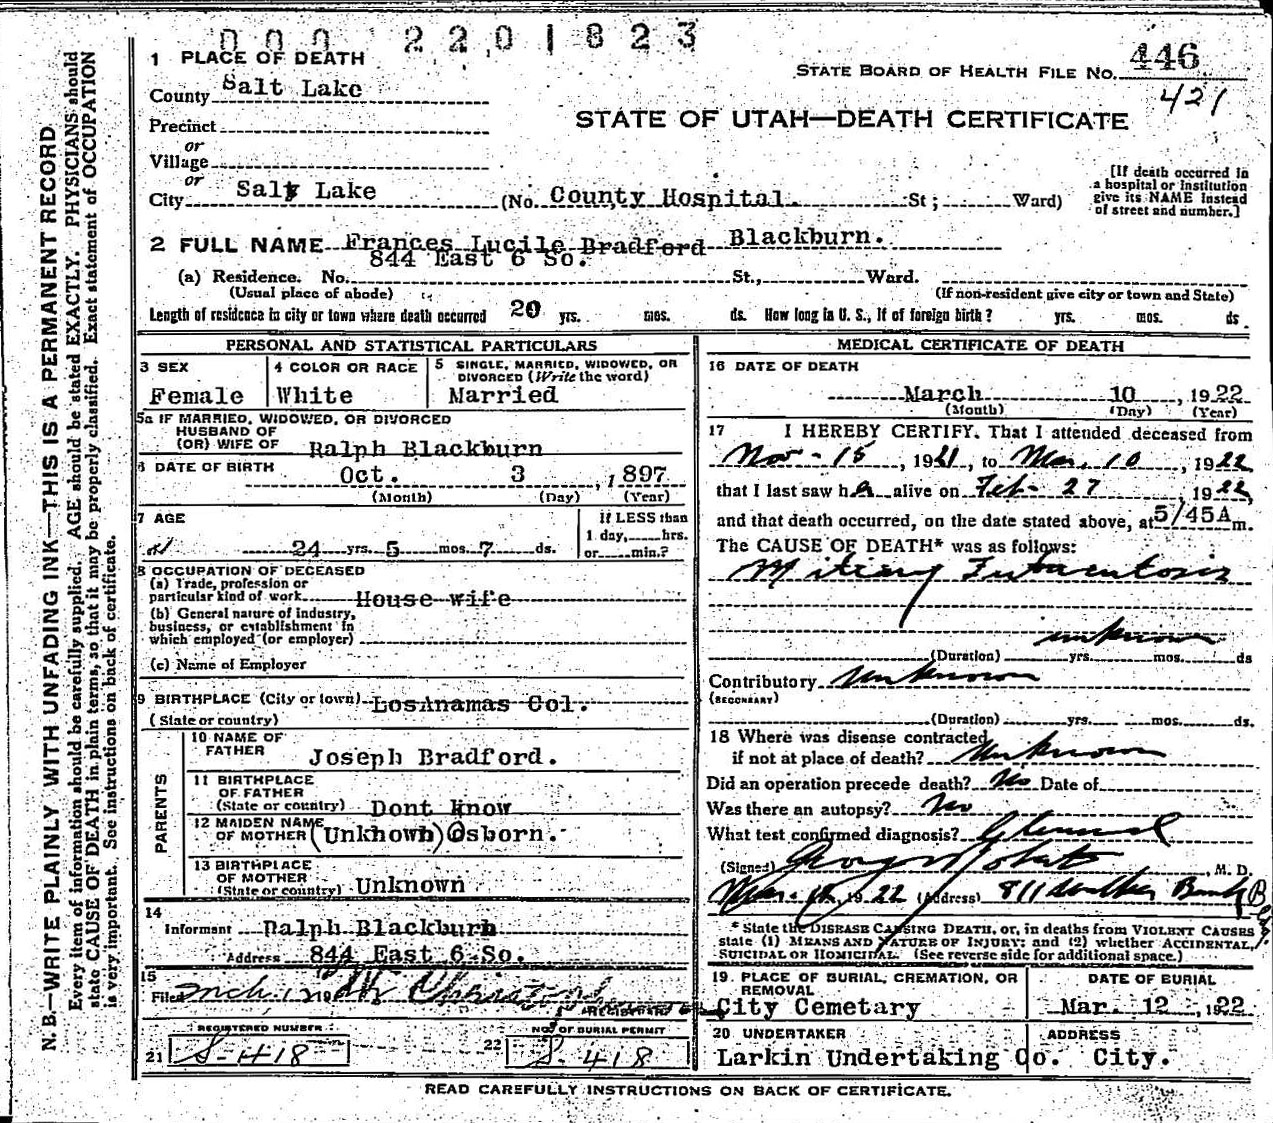 000 2201823
1 PLACE OF DEATH
STATE BOARD OF HEALTH FILE NO. 446
421
County Salt Lake
STATE OF UTAH—DEATH CERTIFICATE
Precinct
or
Village
or
City Salt Lake (No. County Hospital. St; Ward)
[If death occurred in
a hospital or institution
give its NAME instead
of street and number.]
2 FULL NAME Frances Lucile Bradford Blackburn.
844 East 6 So.
(a) Residence. No. St., Ward.
(Usual place of abode) (If non-resident give city or town and State)
Length of residence in city or town where death occurred 20 yrs. mos. ds. How long in U. S., if of foreign birth? yrs. mos. ds.
PERSONAL AND STATISTICAL PARTICULARS
3 SEX
Female
4 COLOR OR RACE
White
5 SINGLE, MARRIED, WIDOWED, OR
DIVORCED (Write the word)
Married
5a IF MARRIED, WIDOWED, OR DIVORCED
HUSBAND OF
(OR) WIFE OF Ralph Blackburn
6 DATE OF BIRTH Oct. 3, 1897
(Month) (Day) (Year)
7 AGE
24 yrs. 5 mos. 7 ds.
If LESS than
1 day, hrs.
or min.?
8 OCCUPATION OF DECEASED
(a) Trade, profession or
particular kind of work House wife
(b) General nature of industry,
business, or establishment in
which employed (or employer)
(c) Name of Employer
9 BIRTHPLACE (City or town) LosAnamas Col.
(State or country)
PARENTS
10 NAME OF
FATHER Joseph Bradford.
11 BIRTHPLACE
OF FATHER
(State or country) Dont know
12 MAIDEN NAME
OF MOTHER (Unkhown) Osborn.
13 BIRTHPLACE
OF MOTHER
(State or country) Unknown
14
Informant Ralph Blackburn
Address 844 East 6 So.
15
Filed Mch. 12
REGISTRAR
REGISTERED NUMBER
21 S-418
NO. OF BURIAL PERMIT
22 S-418
MEDICAL CERTIFICATE OF DEATH
16 DATE OF DEATH
March 10, 1922
(Month) (Day) (Year)
17 I HEREBY CERTIFY, That I attended deceased from
Nov-15, 1921, to Mar. 10, 1922
that I last saw her alive on Feb-27 1922,
and that death occurred, on the date stated above, at 5/45A m.
The CAUSE OF DEATH* was as follows:
Miliary Tuberculosis
unknown
(Duration) yrs. mos. ds
Contributory Unknown
(SECONDARY)
(Duration) yrs. mos. ds.
18 Where was disease contracted
if not at place of death? Unknown
Did an operation precede death? No Date of
Was there an autopsy? No
What test confirmed diagnosis? Clinical
(Signed) George Roberts, M. D.
Mar. 12, 1922 (Address) 811 Walker Bank Bldg.
* State the DISEASE CAUSING DEATH, or, in deaths from VIOLENT CAUSES
state (1) MEANS AND NATURE OF INJURY; and (2) whether ACCIDENTAL,
SUICIDAL OR HOMICIDAL. (See reverse side for additional space.)
19 PLACE OF BURIAL, CREMATION, OR
REMOVAL
City Cemetary
DATE OF BURIAL
Mar. 12, 1922
20 UNDERTAKER
Larkin Undertaking Co.
ADDRESS
City.
READ CAREFULLY INSTRUCTIONS ON BACK OF CERTIFICATE.
N. B.—WRITE PLAINLY WITH UNFADING INK—THIS IS A PERMANENT RECORD
Every item of information should be carefully supplied. AGE should be stated EXACTLY. PHYSICIANS should
state CAUSE OF DEATH in plain terms, so that it may be properly classified. Exact statement of OCCUPATION
is very important. See instructions on back of certificate.